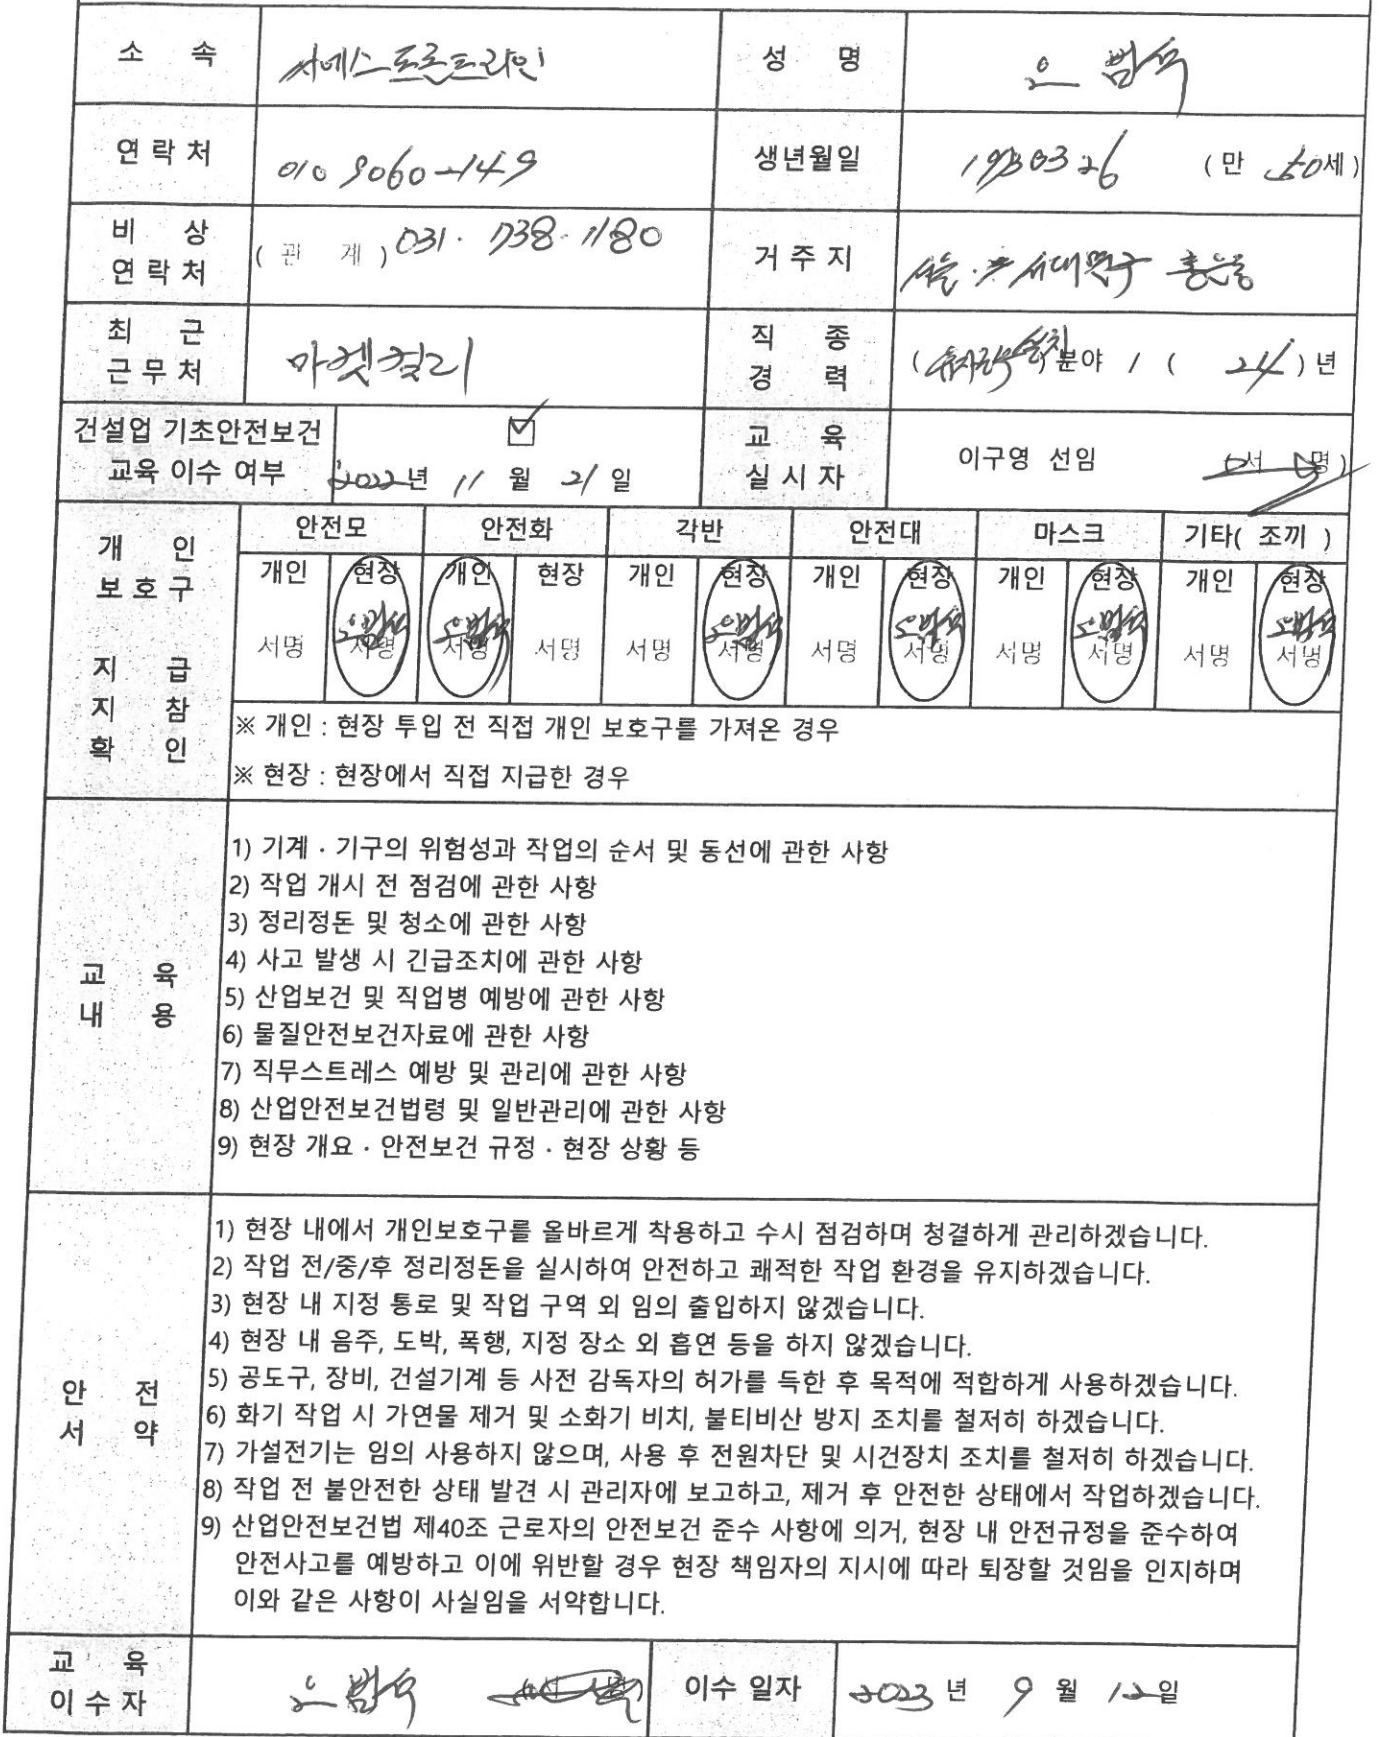 소 속 성 명
연락처 010 9060-2149 생년월일 19730326 (만 50세)
비 상
연락처 (관 계) 031. 738. 1180 거주지 서울. 서대문구 홍은동
최 근
근무처 마켓컬리 직 종
경 력 ( ) 분야 / ( 24 ) 년
건설업 기초안전보건
교육 이수 여부 2022년 11 월 21 일 교 육
실시자 이구영 선임 (서 명)
개 인
보호구
지 급
지 참
확 인
안전모 안전화 각반 안전대 마스크 기타( 조끼 )
개인 현장 개인 현장 개인 현장 개인 현장 개인 현장 개인 현장
서명 서명 서명 서명 서명 서명 서명 서명 서명 서명 서명 서명
※ 개인 : 현장 투입 전 직접 개인 보호구를 가져온 경우
※ 현장 : 현장에서 직접 지급한 경우
교 육
내 용
1) 기계 · 기구의 위험성과 작업의 순서 및 동선에 관한 사항
2) 작업 개시 전 점검에 관한 사항
3) 정리정돈 및 청소에 관한 사항
4) 사고 발생 시 긴급조치에 관한 사항
5) 산업보건 및 직업병 예방에 관한 사항
6) 물질안전보건자료에 관한 사항
7) 직무스트레스 예방 및 관리에 관한 사항
8) 산업안전보건법령 및 일반관리에 관한 사항
9) 현장 개요 · 안전보건 규정 · 현장 상황 등
안 전
서 약
1) 현장 내에서 개인보호구를 올바르게 착용하고 수시 점검하며 청결하게 관리하겠습니다.
2) 작업 전/중/후 정리정돈을 실시하여 안전하고 쾌적한 작업 환경을 유지하겠습니다.
3) 현장 내 지정 통로 및 작업 구역 외 임의 출입하지 않겠습니다.
4) 현장 내 음주, 도박, 폭행, 지정 장소 외 흡연 등을 하지 않겠습니다.
5) 공도구, 장비, 건설기계 등 사전 감독자의 허가를 득한 후 목적에 적합하게 사용하겠습니다.
6) 화기 작업 시 가연물 제거 및 소화기 비치, 불티비산 방지 조치를 철저히 하겠습니다.
7) 가설전기는 임의 사용하지 않으며, 사용 후 전원차단 및 시건장치 조치를 철저히 하겠습니다.
8) 작업 전 불안전한 상태 발견 시 관리자에 보고하고, 제거 후 안전한 상태에서 작업하겠습니다.
9) 산업안전보건법 제40조 근로자의 안전보건 준수 사항에 의거, 현장 내 안전규정을 준수하여
안전사고를 예방하고 이에 위반할 경우 현장 책임자의 지시에 따라 퇴장할 것임을 인지하며
이와 같은 사항이 사실임을 서약합니다.
교 육
이수자 이수 일자 2023 년 9 월 12 일